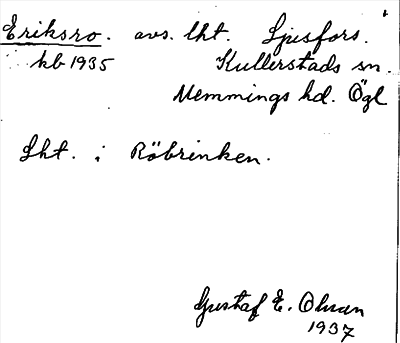 Eriksro. avs. lht. Ljusfors.
kb 1935 Kullerstads sn.
Memmings hd. Ögl
Lht. i Röbrinken.
Gustaf E. Olson
1937